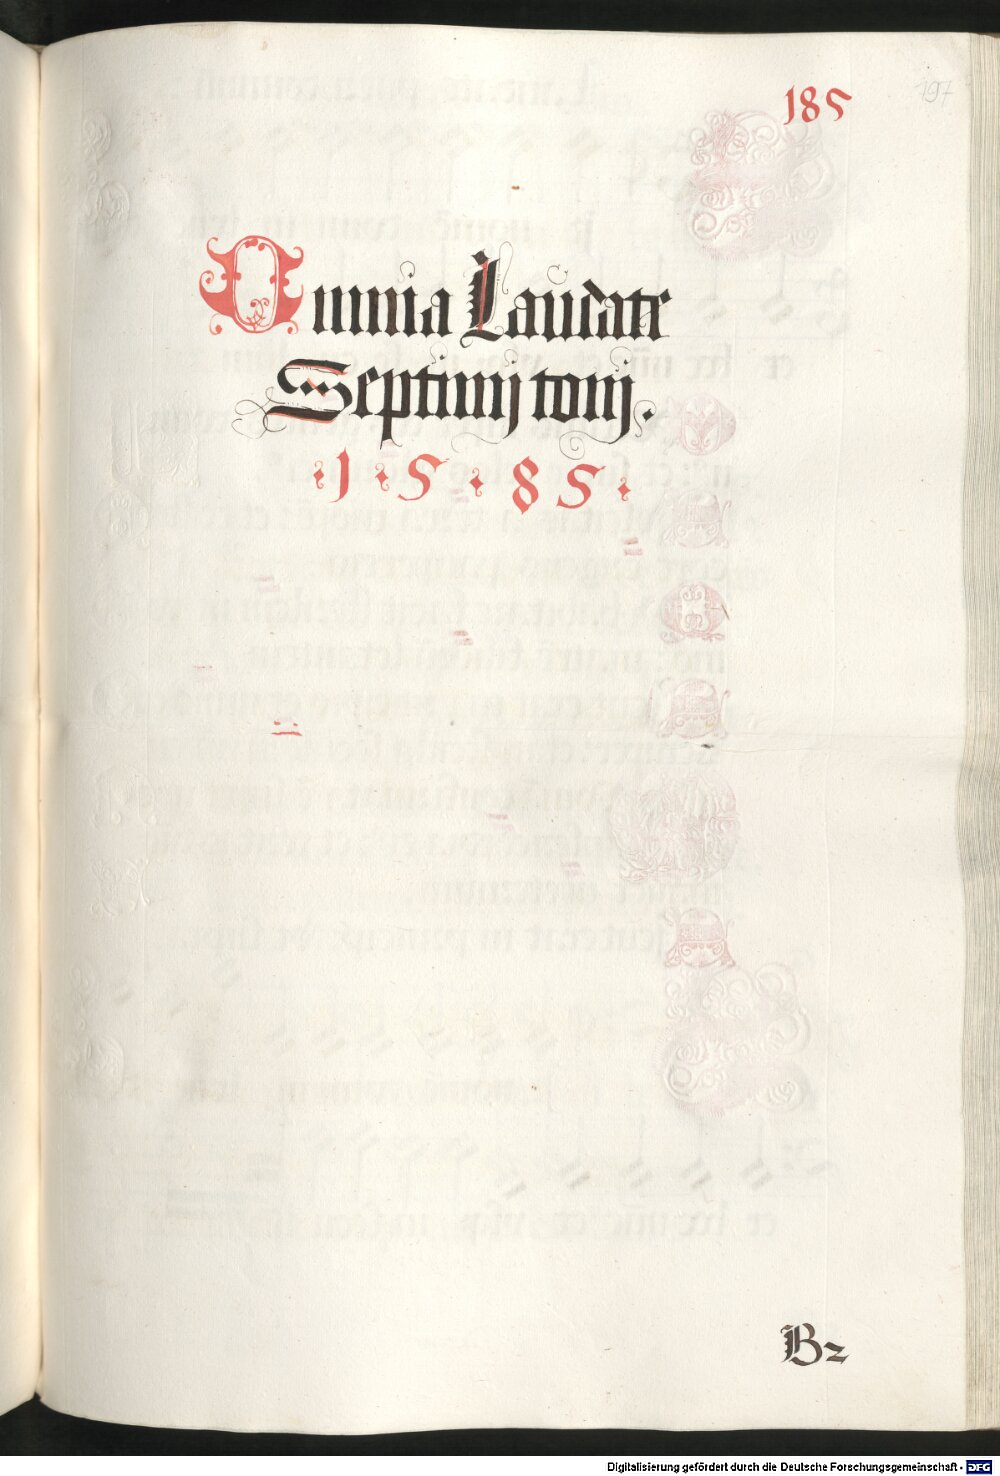 185
197
Omnia Laudate
Septimj tonj.
1585
B2
Digitalisierung gefördert durch die Deutsche Forschungsgemeinschaft - DFG